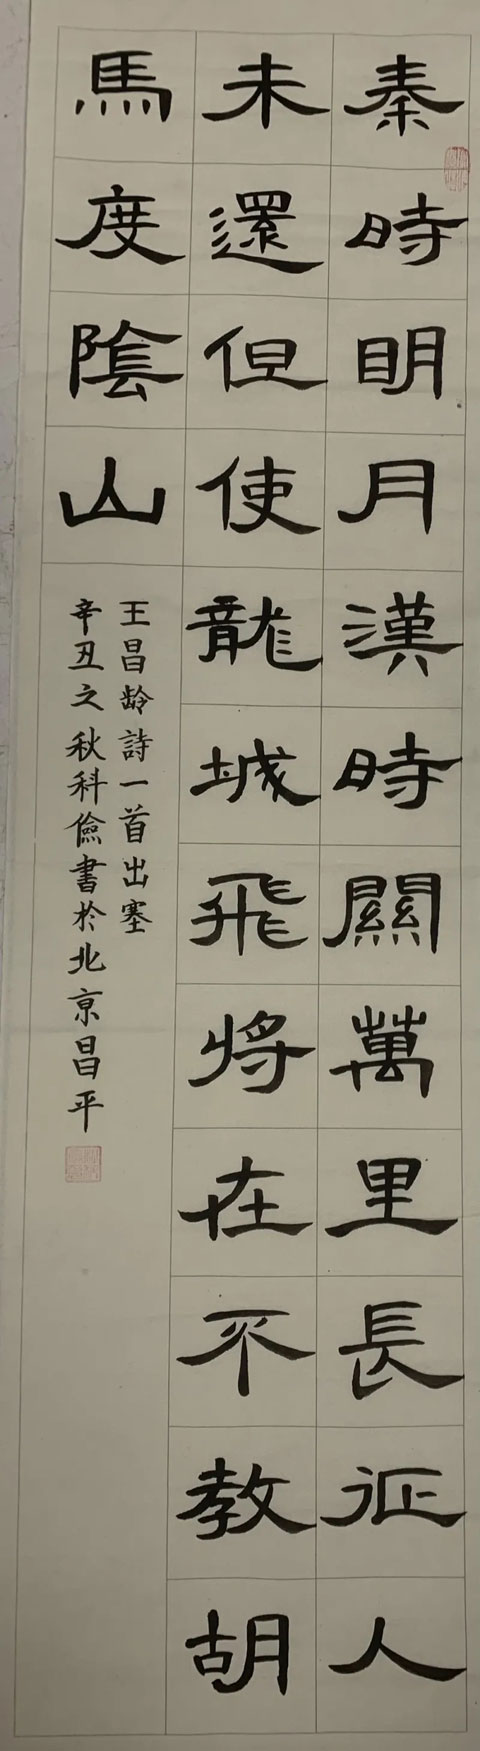 秦時明月漢時關萬里長征人
未還但使龍城飛將在不教胡
馬度陰山
王昌龄詩一首出塞
辛丑之秋科儉書於北京昌平